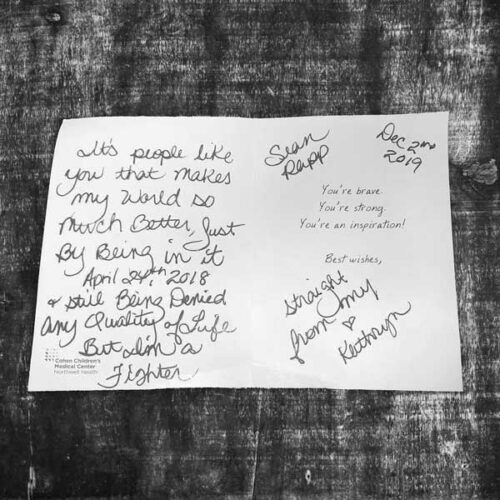 It's people like
you that makes
my World so
much Better, Just
By Being in it
April 24th, 2018
& still Being Denied
any Quality of Life
But i'm a
Fighter
Cohen Children's
Medical Center
Northwell Health
Sean
Rapp
Dec 2nd
2019
You're brave.
You're strong.
You're an inspiration!
Best wishes,
straight
from my
♡
Kathryn